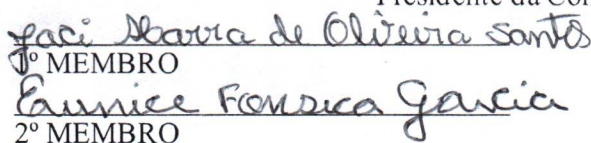 Presidente da Com
Jaci Ibarra de Oliveira Santos
1º MEMBRO
Eunice Fonseca Garcia
2º MEMBRO